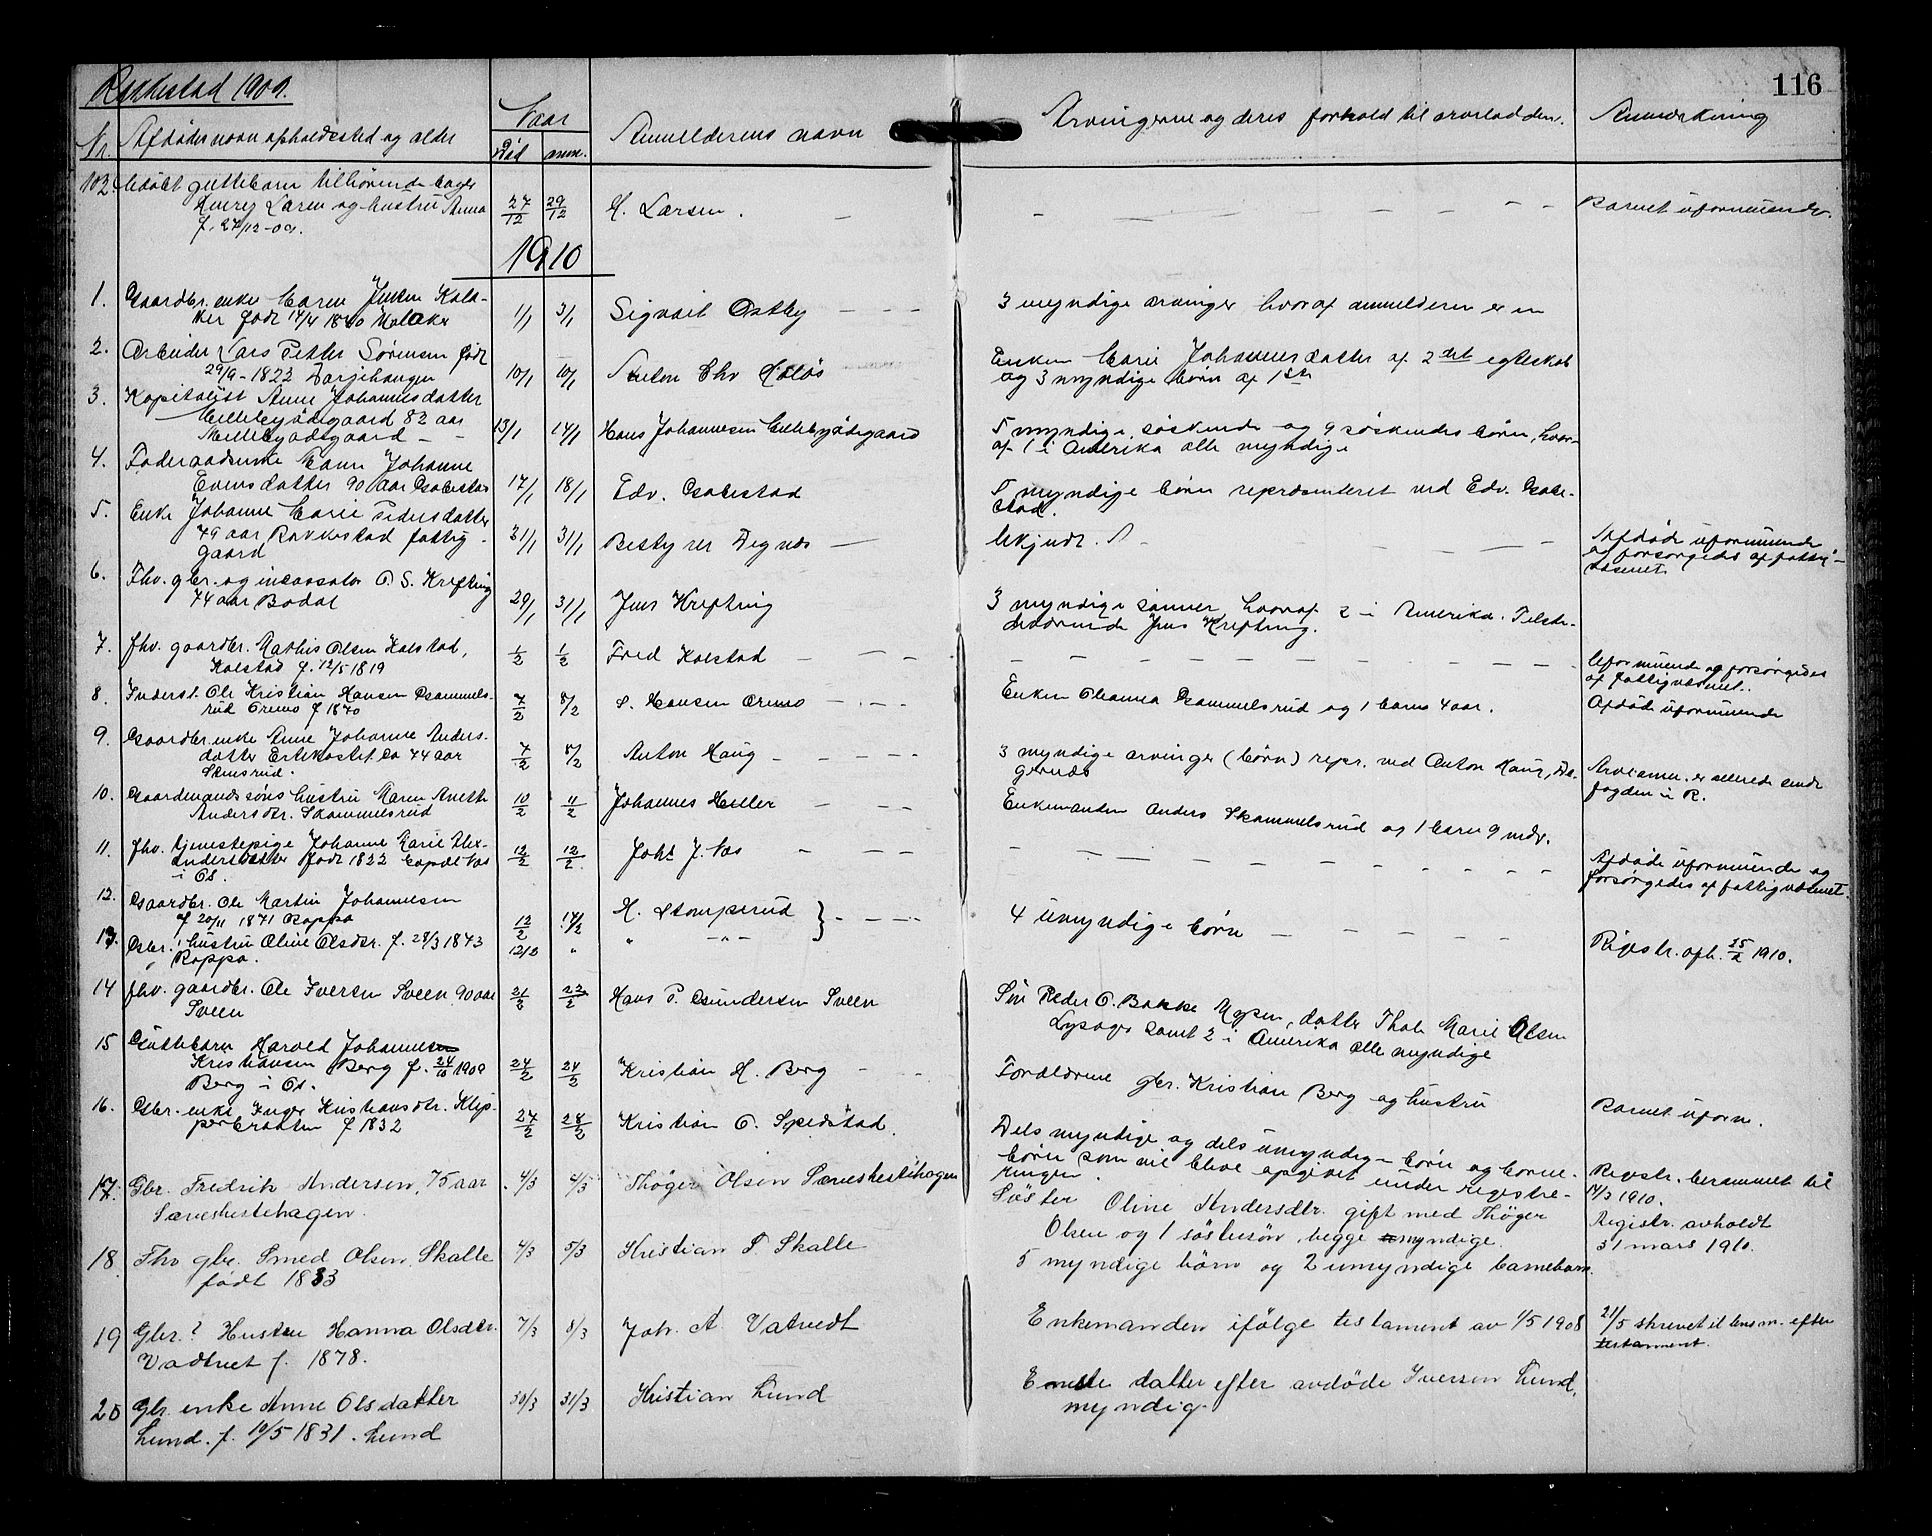 Rakkestad 1909.
116
Nr. Afdødes navn opholdssted og alder
Naar
Død anm.
Anmelderens navn
Arvingerne og deres forhold til arveladder.
Anmerkning
102. Udøbt guttebarn tilhørende bager
Larsen og hustru Anna
f. 27/12-09.
27/12 29/12 H. Larsen.
Barnet uformuende.
1910
1. Gaardbr. enke Maren
ker født 14/4 1840
1/1 3/1 Sigvart Østby
3 myndige arvinger hvoraf anmelderen er en
2. Arbeider Lars Petter Sørensen født
29/9-1823
10/1 10/1 Anton Chr
Enken Marie Johannesdatter af 2det egteskab
og 3 myndige børn af 1ste
3. Kapitalist Anne Johannesdatter
Millebyødegaard 82 aar
Millebyødegaard
13/1 14/1 Hans Johannesen Millebyødegaard
5 myndige søskende og 9 søskendes børn, hvor-
af 1 i Amerika alle myndige
4. Føderaadsenke Johanne
Evensdatter 90 aar Gabestad
17/1 18/1 Edv. Gabestad
5 myndige børn repræsenteret ved Edv. Gabe-
stad.
5. Enke Johanne Marie Pedersdatter
79 aar Rakkestad fattig-
gaard
31/1 31/1 Bestyrer Degnæs
Ukjendt.
Afdøde uformuende
og forsørgedes af fattig-
væsenet
6. Fhv. gbr. og inkassator O. S. Krefting
74 aar Bodal
29/1 31/1 Jens Krefting
3 myndige sønner hvoraf 2 i Amerika. Tilste-
deværende Jens Krefting.
7. fhv. gaardbr. Mathis Olsen Kolstad,
Kolstad f. 12/5 1819
1/2 1/2 Fred Kolstad
Uformuende og forsørgedes
af fattigvæsenet.
8. Inderst. Ole Kristian Hansen Gammels-
rud Oremo f 1870
7/2 8/2 S. Hansen Oremo
Enken Gammelsrud og 1 barn 4 aar.
Afdøde uformuende
9. Gaardbr. enke Anne Johanne Anders-
datter ca 74 aar
7/2 8/2 Anton Haug
3 myndige arvinger (børn) repr. ved Anton Haug, De-
gernæs
Arveanm. er allerede sendt
fogden i R.
10. Gaardmandssøns hustru Maren Aneth
Andersdtr. Skammelsrud
10/2 11/2 Johannes Heller
Enkemanden Anders Skammelsrud og 1 barn 9 mdr.
11. fhv. tjenestepige Johanne Marie Alex-
andersdatter født 1822
i Os.
12/2 12/2 Johs J. Næs
Afdøde uformuende og
forsørgedes af fattigvæsenet
12. Gaardbr. Ole Martin Johannesen
f 20/11 1871 Rappa
12/2 14/2 H. Stomperud }
4 umyndige børn
13. Gbr. hustru Oline Olsdtr. f. 28/3 1873
Rappa.
12/2 " " -"-
Registr. afh. 25/2 1910.
14 fhv. gaardbr. Ole Iversen Sveen 90 aar
Sveen
21/2 22/2 Hans P. Gundersen Sveen
Søn Peder O. Bakke Mysen, datter Thale Marie Olsen
samt 2 i Amerika alle myndige
15 Guttebarn Harald Johannes
Kristiansen Berg f. 24/10 1909
Berg i Os.
24/2 24/2 Kristian H. Berg
Forældrene gbr. Kristian Berg og hustru
Barnet uform.
16. Gbr. enke Inger Kristiansdtr. Klip-
perbraaten f 1832
27/2 28/2 Kristian O. Spedstad.
Dels myndige og dels umyndige børn og børne-
børn som vil blive opgivet under registre-
ringen.
Registr. berammet til
14/3 1910.
17. Gbr. Fredrik Andersen, 75 aar
Sæveshestehagen.
4/3 4/3 Thøger Olsen Sæveshestehagen
Søster Oline Andersdtr. gift med Thøger
Olsen og 1 søstersøn, begge myndige.
Registr. avholdt
31 mars 1910.
18. Fhv gbr. Smed Olsen Skalle
født 1833
4/3 5/3 Kristian S. Skalle
5 myndige børn og 2 umyndige barnebarn.
19 Gbr.? Hustru Hanna Olsdtr.
Vadtvet f. 1878.
7/3 8/3 Joh. A. Vatvedt
Enkemanden ifølge testament av 1/5 1908
21/5 skrevet til lensm. efter
testament.
20 Gbr. enke Anne Olsdatter
Lund. f. 10/5 1831. Lund
30/3 31/3 Kristian Lund
Eneste datter efter avdøde Iversen Lund,
myndig.